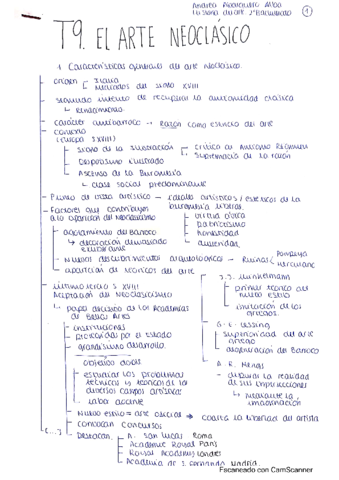 Historia del arte 2º Bachillerato
1
T9. EL ARTE NEOCLÁSICO
1. Características generales del arte neoclásico.
origen
Italia
Mediados del siglo XVIII
segundo intento de recuperar la antigüedad clásica
Renacimiento
carácter antibarroco → Razón como esencia del arte
contexto
(Europa SXVIII)
siglo de la Ilustración
crítica al Antiguo Régimen
supremacía de la razón
Despotismo Ilustrado
Ascenso de la Burguesía
clase social predominante
Punto de vista artístico - ideales artísticos/estéticos de la
burguesía liberal
Factores que contribuyen
a la aparición del Neoclasicismo
virtud cívica
patriotismo
honestidad
austeridad
agotamiento del Barroco
decoración demasiado
exuberante
Nuevos descubrimientos arqueológicos - Ruinas
Pompeya
Herculano
aparición de teóricos del arte
J.J. Winckelmann
primer teórico del
nuevo estilo
imitación de los
griegos
G. E. Lessing
superioridad del arte
griego
degeneración del Barroco
A. R. Mengs
depurar la realidad
de sus imperfecciones
mediante la
imaginación
último tercio S. XVIII
aceptación del Neoclasicismo
papel decisivo de las Academias
de Bellas Artes
instituciones
protegidas por el estado
grandísimo desarrollo
objetivo doble
estudiar los problemas
técnicos y teóricos de los
diversos campos artísticos
labor docente
Nuevo estilo = arte oficial → coarta la libertad del artista
convocan concursos
(...)
Destacan
A. San Lucas Roma
Academie Royal París
Royal Academy Londres
Academia de S. Fernando Madrid.
Escaneado con CamScanner